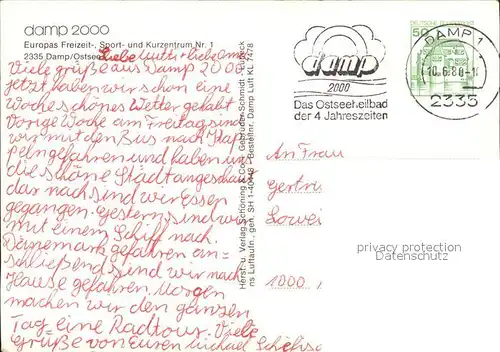 damp 2000
Europas Freizeit-, Sport- und Kurzentrum Nr. 1
2335 Damp/Ostsee
Liebe Mutti + liebe Oma
Viele grüße aus Damp 2000
jetzt haben wir schon eine
Woche schönes Wetter gehabt
Vorige Woche am Freitag sind
wir mit dem Bus nach Kap-
peln gefahren und haben uns
die schöne Stadt angeschaut
dar nach sind wir Essen
gegangen. Gestern sind wir
mit einem Schiff nach
Dänemark gefahren an-
schließend sind wir nach
Hause gefahren. Morgen
machen wir den ganzen
Tag eine Radtour. Viele
Grüße von Euren Michael
Herst. u. Verlag Schöning & Co + Gebrüder Schmidt · Lübeck
ns Luftaufn., gen. SH 1-40448 Bestellnr. Damp Luft KL 7478
damp
2000
Das Ostseeheilbad
der 4 Jahreszeiten
DEUTSCHE BUNDESPOST
50
DAMP 1
10.6.80-1
2335
An Frau
Gertri
Lowei
1000
privacy protection
Datenschutz